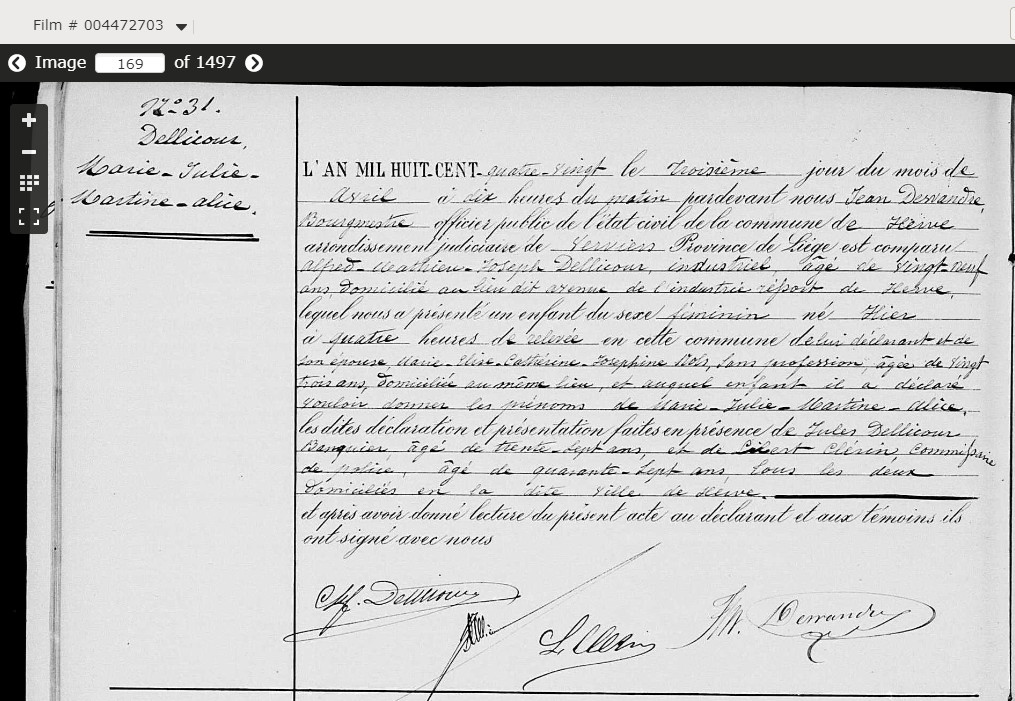 Film # 004472703
Image 169 of 1497
N° 31.
Dellicour,
Marie-Julie-
Martine-alice.
L'AN MIL HUIT-CENT-quatre-Vingt le Troisième jour du mois de
Avril à dix heures du matin pardevant nous Jean Dewandre,
Bourgmestre officier public de l'état civil de la commune de Herve
arrondissement judiciaire de Verviers Province de Liége est comparu
Alfred-Mathieu-Joseph Dellicour, industriel, âgé de Vingt-neuf
ans, Domicilié au lieu dit avenue de l'industrie réssort de Herve,
lequel nous a présenté un enfant du sexe féminin né Hier
à quatre heures de relevée en cette commune de lui déclarant et de
son épouse, Marie-Elise-Catherine-Josephine Bols, Sans profession, âgée de Vingt
trois ans, Domiciliée au même lieu, et auquel enfant il a déclaré
Vouloir donner les prénoms de Marie-Julie-Martine-Alice,
les dites déclaration et présentation faites en présence de Jules Dellicour
Banquier, âgé de trente-Sept ans, et de Clérin, Commissaire
de police, âgé de quarante-Sept ans tous les deux
Domiciliés en la dite Ville de Herve.
et après avoir donné lecture du présent acte au déclarant et aux témoins ils
ont signé avec nous
Alf. Dellicour
L Clérin
Dewandre